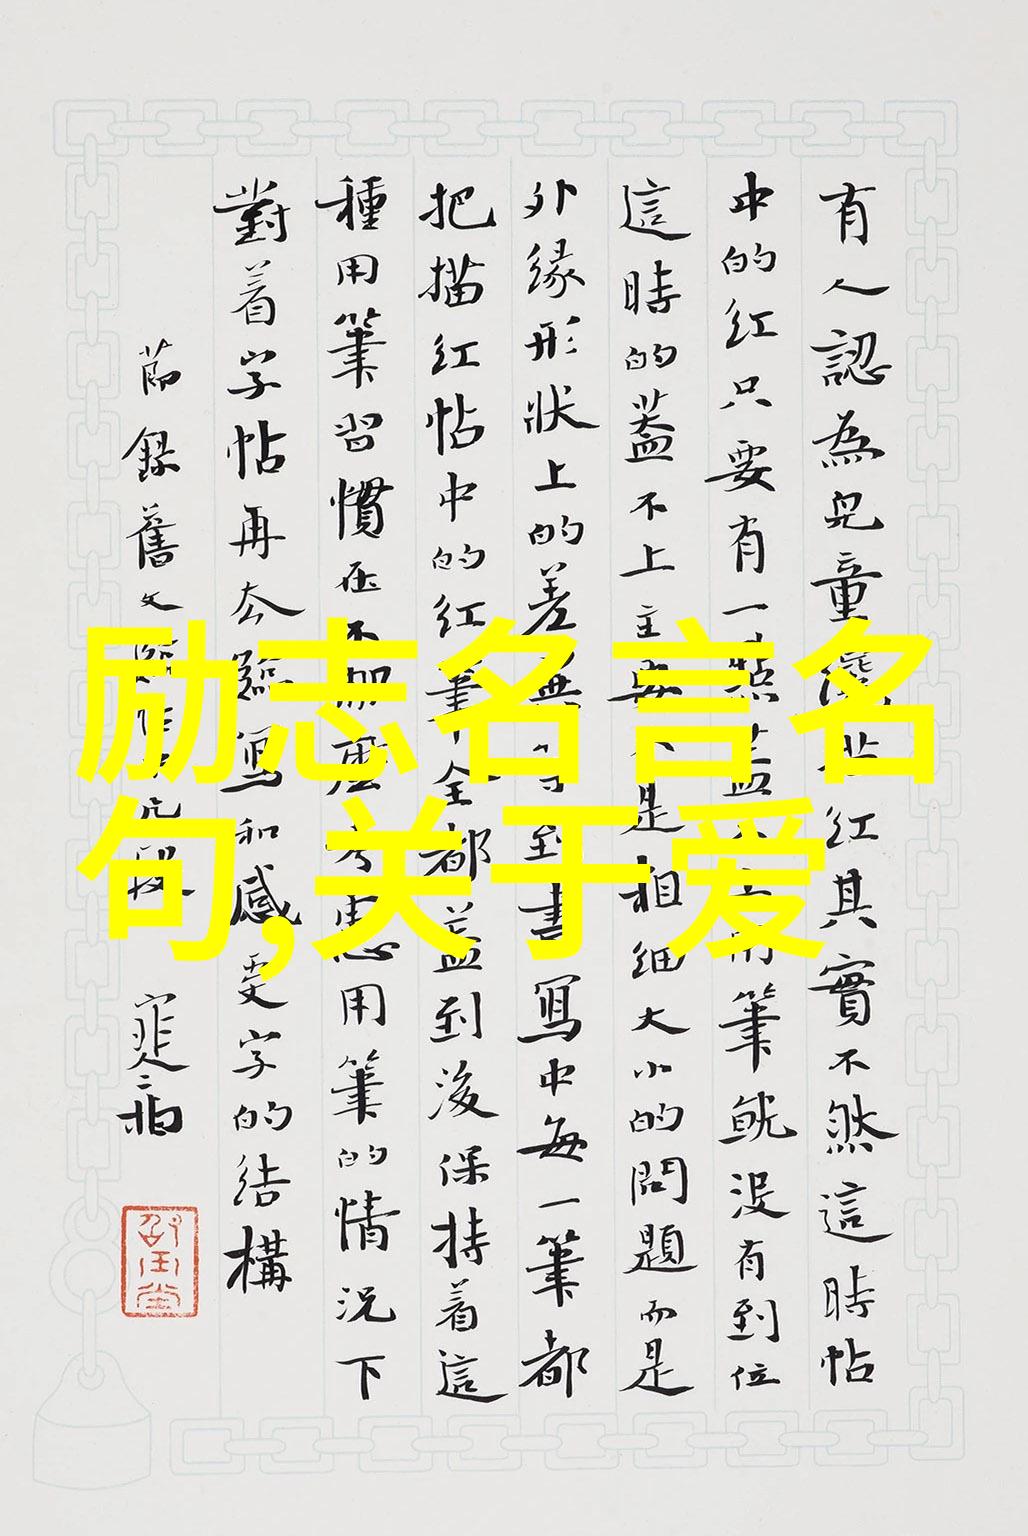 励志名言名
句,关于爱
有人認為兒童描红其實不然這時帖
中的红只要有一點蓋不上用筆就沒有到位
這時的蓋不上主要不是粗細大小的問題而是
外緣形狀上的差異等到書寫中每一筆都
把描红帖中的红筆全都蓋到後保持着這
種用筆習慣在不加考慮用筆的情況下
對着字帖再去臨寫和感受字的結構
節錄舊文